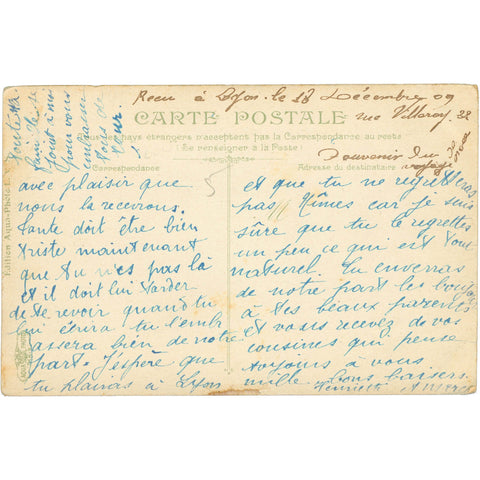 Reçu à Lyon le 18 Décembre 09
CARTE POSTALE
rue Villeroy 32
Tous les pays étrangers n'acceptent pas la Correspondance au recto
(Se renseigner à la Poste)
Souvenir du
voyage
Correspondance
Adresse du destinataire
5
Toute la
famille se
joint à moi
pour vous
embrasser
tous de
avec plaisir que
nous la recevrons.
tante doit être bien
triste maintenant
que tu n'es pas là
et il doit lui tarder
de te revoir quand tu
lui écrira tu l'embr
assera bien de notre
part. J'espère que
tu plairas à Lyon
et que tu ne regretteras
pas Nîmes car je suis
sûre que tu le regrettes
un peu ce qui est tout
naturel. Tu enverras
de notre part les bonjours
à tes beaux parents
et vous recevez de vos
cousines qui pense
toujours à vous
mille bons baisers.
Henriette
Edition Aqua-Photo